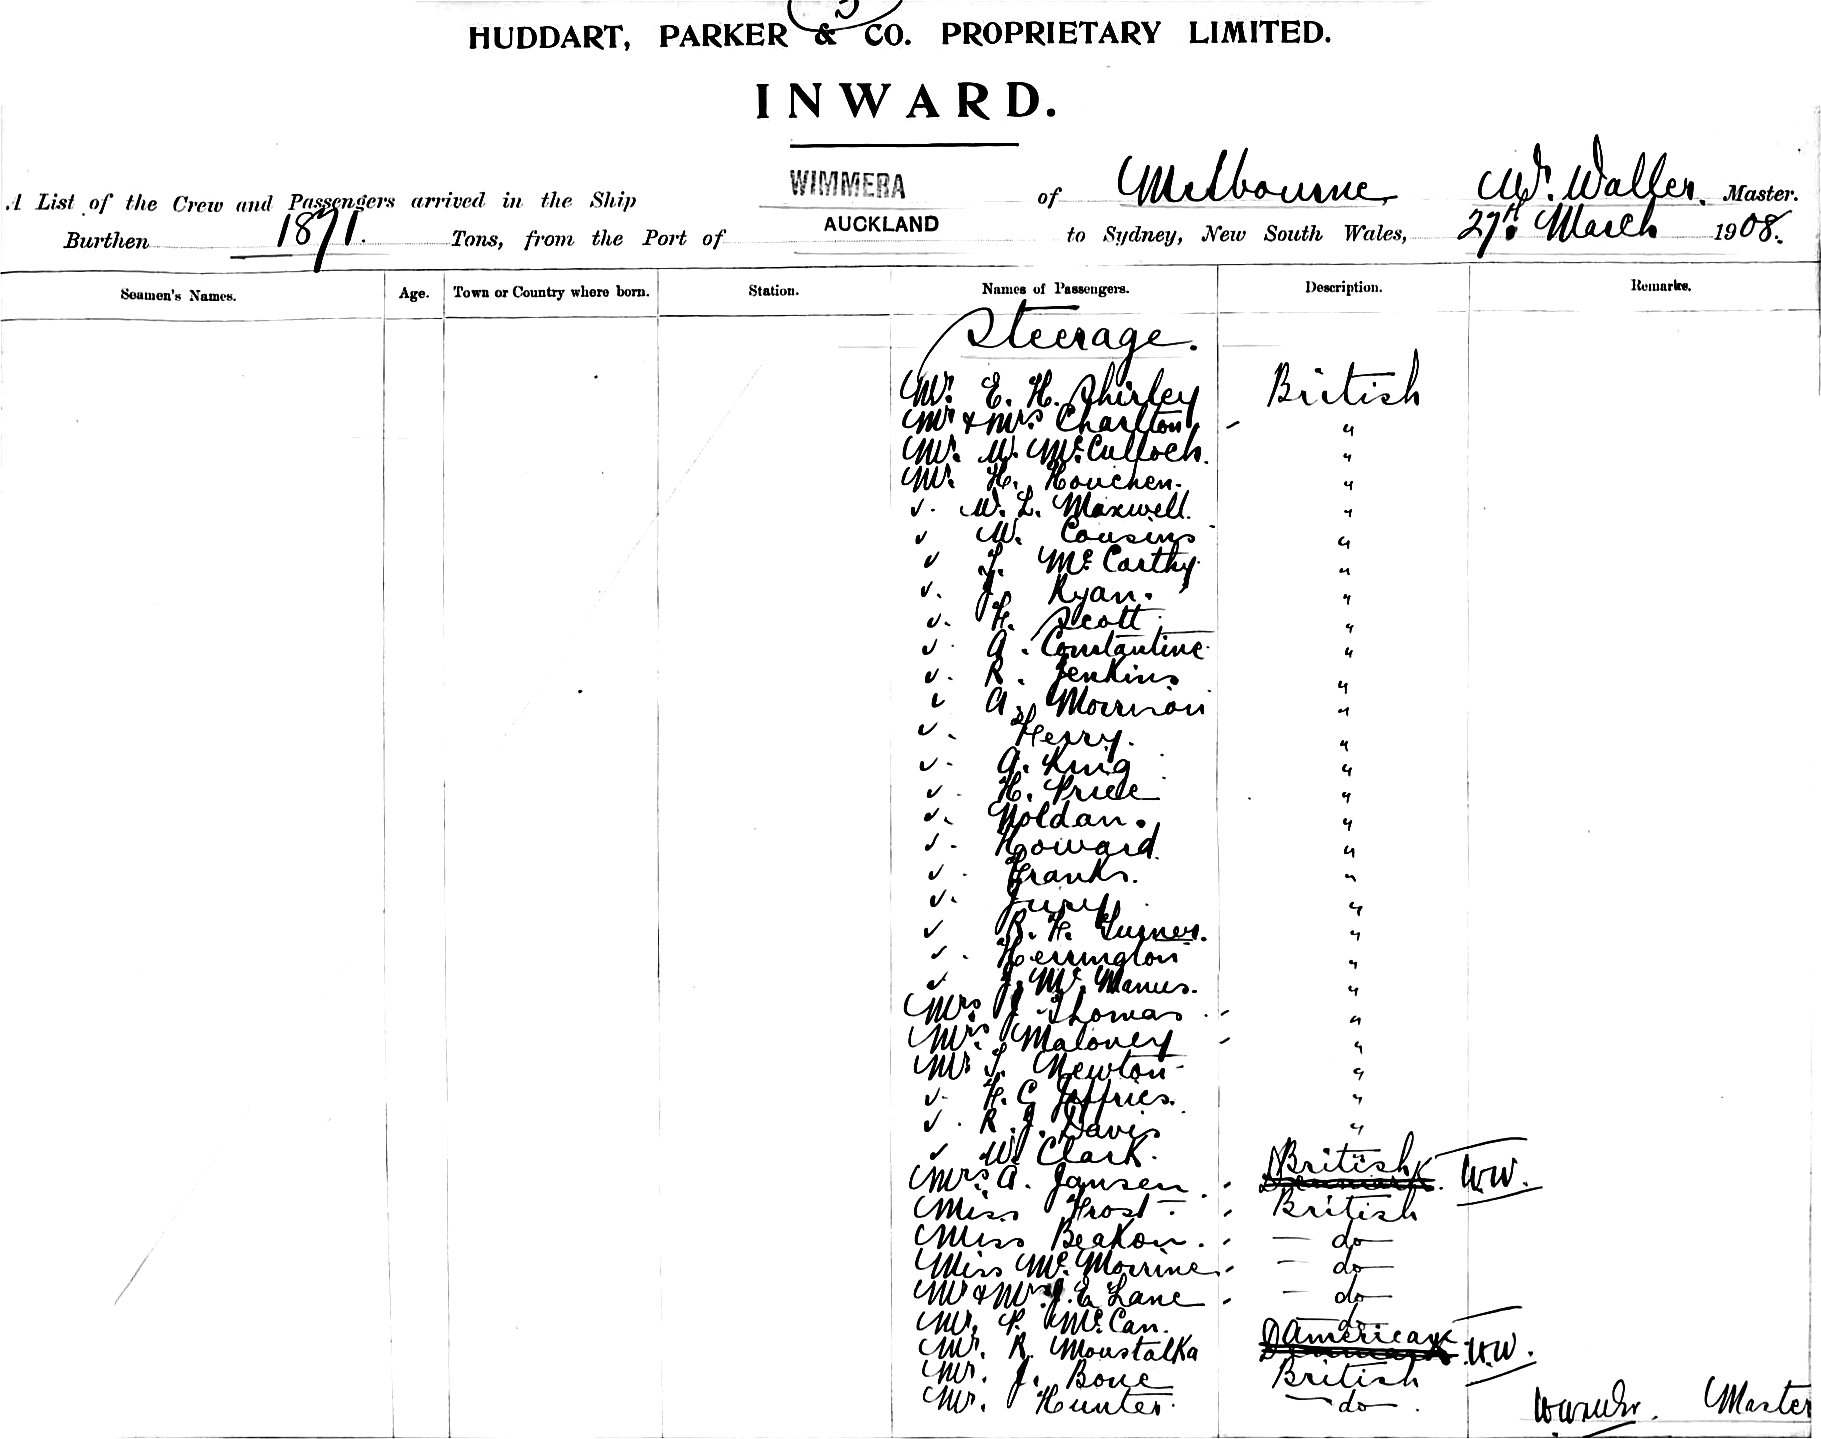 3
HUDDART, PARKER & CO. PROPRIETARY LIMITED.
INWARD.
A List of the Crew and Passengers arrived in the Ship WIMMERA of Melbourne, Wm. Waller, Master.
Burthen 1871. Tons, from the Port of AUCKLAND to Sydney, New South Wales, 27th March 1908.
Seamen's Names. Age. Town or Country where born. Station. Names of Passengers. Description. Remarks.
Steerage.
Mr. E. H. Shirley British
Mr & Mrs Charlton "
Mr. W. McCulloch. "
Mr. H. Houchen. "
". W. L. Maxwell. "
" W. Cousins "
" J. McCarthy "
". J. Ryan. "
". H. Scott "
". A. Constantine "
". R. Jenkins "
" A. Morrison "
". Henry. "
". A. King "
". H. Price "
". Noldan. "
". Howard. "
". Franks. "
". Jury "
" R. H. Turner. "
". Herrington "
" J. McManus. "
Mrs. J. Thomas "
Mrs. Maloney "
Mr. T. Newton "
". H. C. Jeffries. "
". R. J. Davis "
" W. Clark.
Mrs. A. Jansen British Denmark. W.W.
Miss Frost British
Miss Beakon. do
Miss McMorrine do
Mr & Mrs J. E. Lane do
Mr. P. McCan. do
Mr. R. Moustalka American Denmark W.W.
Mr. J. Bone British
Mr. Hunter do.
Master